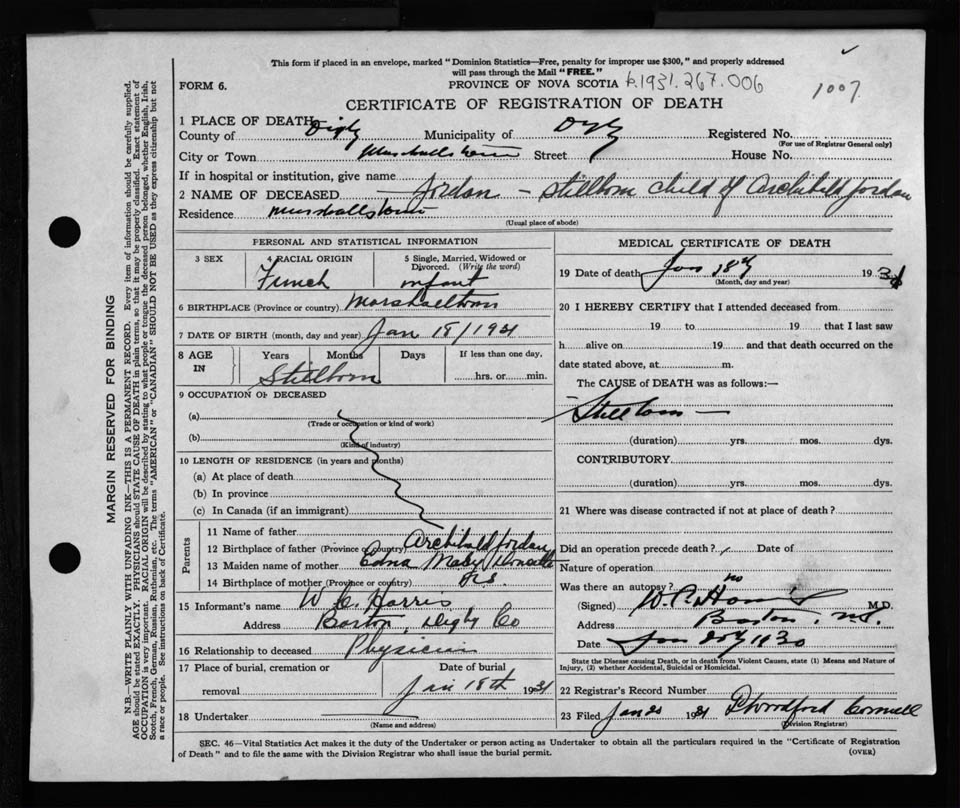 This form if placed in an envelope, marked "Dominion Statistics—Free, penalty for improper use $300," and properly addressed
will pass through the Mail "FREE."
FORM 6.
PROVINCE OF NOVA SCOTIA
1931.267.006
1007
CERTIFICATE OF REGISTRATION OF DEATH
1 PLACE OF DEATH
County of Digby Municipality of Digby Registered No.
(For use of Registrar General only)
City or Town Marshalltown Street House No.
If in hospital or institution, give name
2 NAME OF DECEASED Jordan - stillborn child of Archibald Jordan
Residence Marshalltown
(Usual place of abode)
PERSONAL AND STATISTICAL INFORMATION
3 SEX 4 RACIAL ORIGIN 5 Single, Married, Widowed or Divorced. (Write the word)
French infant
6 BIRTHPLACE (Province or country) Marshalltown
7 DATE OF BIRTH (month, day and year) Jan 18/1931
8 AGE IN Years Months Days If less than one day,
Stillborn hrs. or min.
9 OCCUPATION OF DECEASED
(a)
(Trade or occupation or kind of work)
(b)
(Kind of industry)
10 LENGTH OF RESIDENCE (in years and months)
(a) At place of death
(b) In province
(c) In Canada (if an immigrant)
Parents
11 Name of father Archibald Jordan
12 Birthplace of father (Province or country)
13 Maiden name of mother Edna Mabel
14 Birthplace of mother (Province or country) N.S.
15 Informant's name W. C. Harris
Address Barton, Digby Co
16 Relationship to deceased Physician
17 Place of burial, cremation or removal Date of burial
Jan 18th 1931
18 Undertaker
(Name and address)
MEDICAL CERTIFICATE OF DEATH
19 Date of death Jan 18th 1931
(Month, day and year)
20 I HEREBY CERTIFY that I attended deceased from
19 to 19 that I last saw
h alive on 19 and that death occurred on the
date stated above, at m.
The CAUSE of DEATH was as follows:—
Stillborn —
(duration) yrs. mos. dys.
CONTRIBUTORY.
(duration) yrs. mos. dys.
21 Where was disease contracted if not at place of death?
Did an operation precede death? Date of
Nature of operation
Was there an autopsy? no
(Signed) W. C. Harris M.D.
Address Barton, N.S.
Date Jan 20th 1930
State the Disease causing Death, or in death from Violent Causes, state (1) Means and Nature of
Injury, (2) whether Accidental, Suicidal or Homicidal.
22 Registrar's Record Number
23 Filed Jan 20 1931 Woodford Connell
(Division Registrar)
SEC. 46—Vital Statistics Act makes it the duty of the Undertaker or person acting as Undertaker to obtain all the particulars required in the "Certificate of Registration
of Death" and to file the same with the Division Registrar who shall issue the burial permit.
(OVER)
MARGIN RESERVED FOR BINDING
N.B.—WRITE PLAINLY WITH UNFADING INK—THIS IS A PERMANENT RECORD. Every item of information should be carefully supplied.
AGE should be stated EXACTLY. PHYSICIANS should STATE CAUSE OF DEATH in plain terms, so that it may be properly classified. Exact statement of
OCCUPATION is very important. RACIAL ORIGIN will be described by stating to what people or tongue the deceased person belonged, whether English, Irish,
Scotch, French, German, Russian, Ruthenian, etc. The terms "AMERICAN" or "CANADIAN" SHOULD NOT BE USED as they express citizenship but not
a race or people. See instructions on back of Certificate.